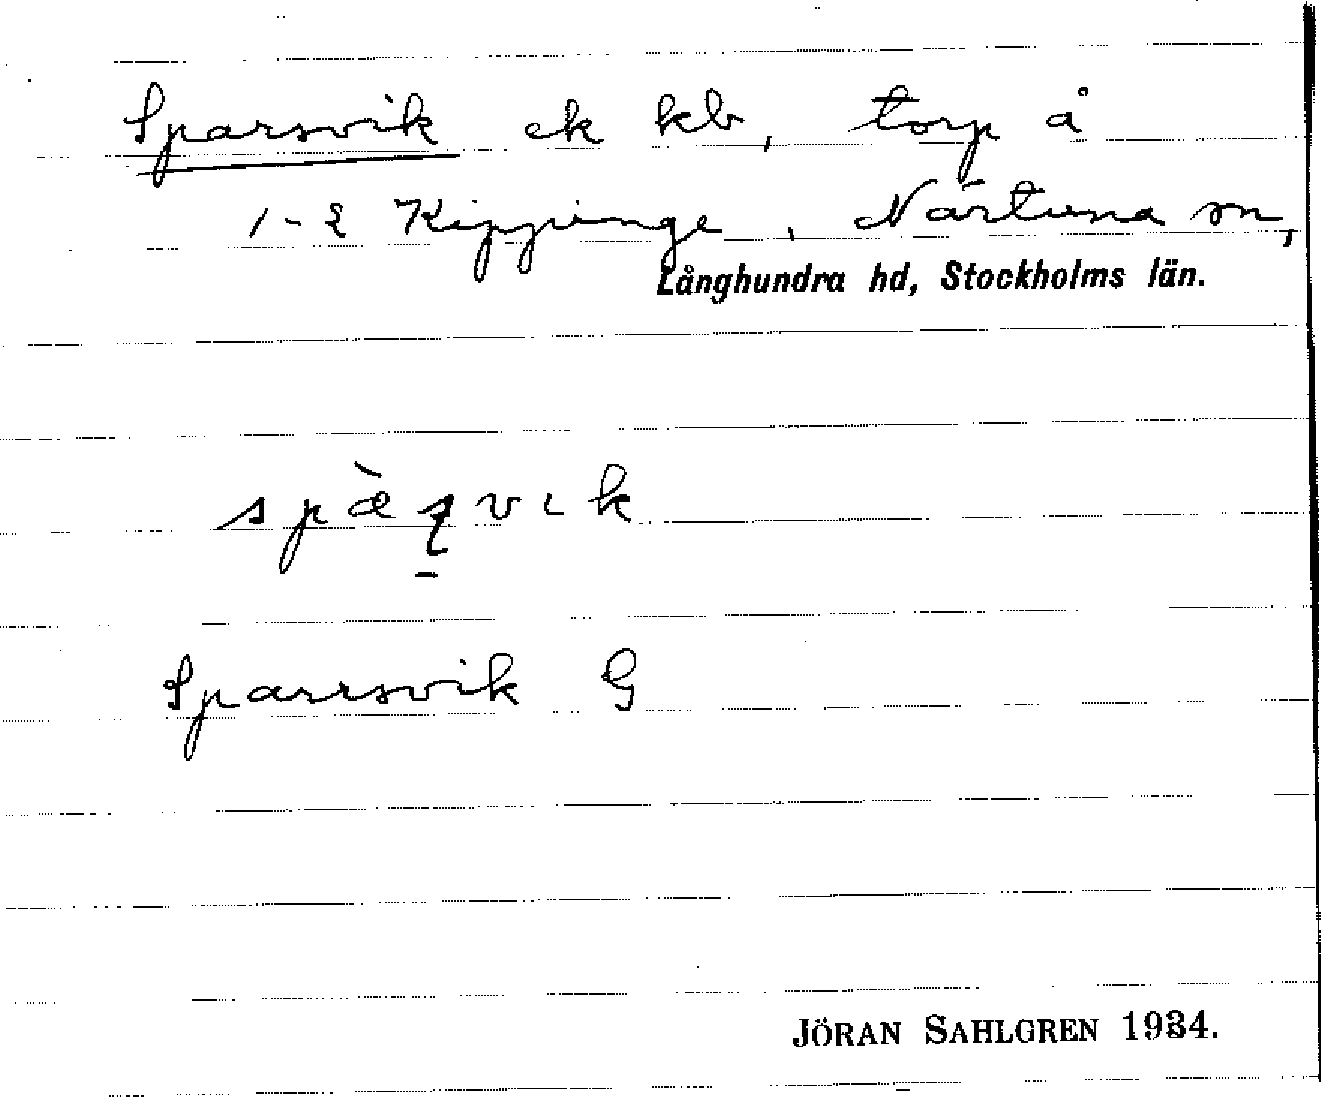 Sparsvik ek kb, torp å
1-2 Kippinge, Närtuna sn,
Långhundra hd, Stockholms län.
Sparrsvik G
JÖRAN SAHLGREN 1934.